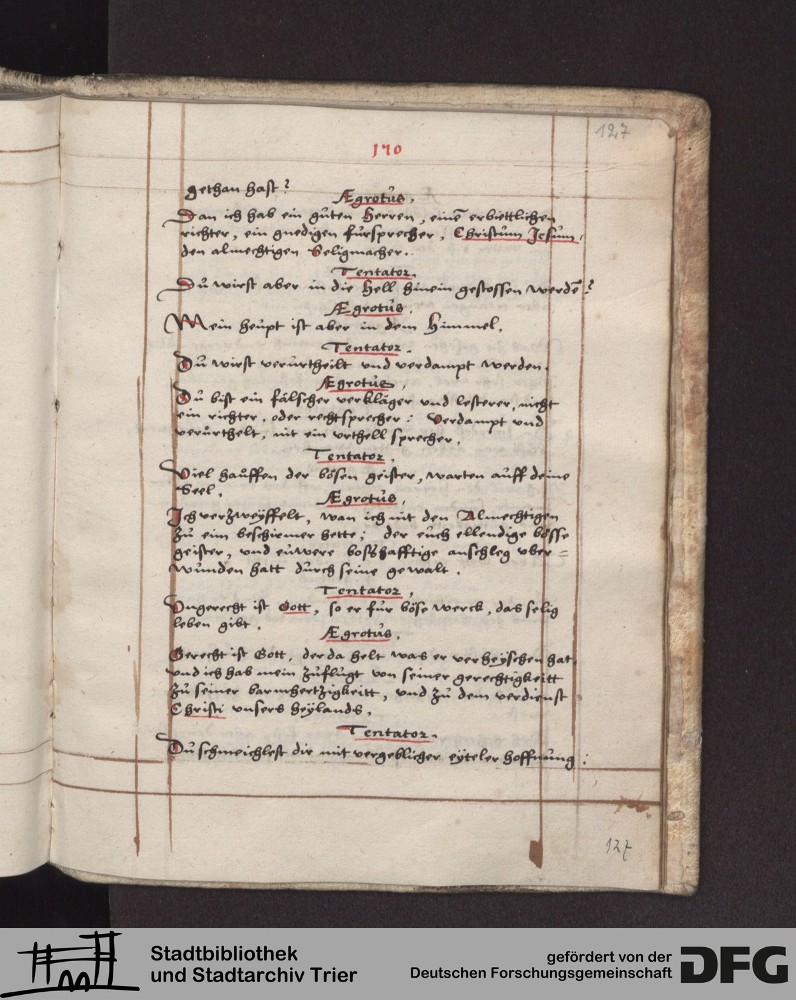 127
170
gethan hast?
Ægrotus.
Dan ich hab ein guten Herren, einē erbiettlichen
richter, ein gnedigen fürsprecher, Christum Jesum,
den almechtigen Seligmacher.
Tentator.
Du wirst aber in die Hell hinein gestossen werdē?
Ægrotus.
Mein heupt ist aber in dem Himmel.
Tentator.
Du wirst verurtheilt vnd verdampt werden.
Ægrotus,
Du bist ein fälscher verkläger vnd lesterer, nicht
ein richter, oder rechtsprecher: Verdampt vnd
verurthelt, nit ein vrthell sprecher.
Tentator.
Viel hauffen der bösen geister, warten auff deine
Seel.
Ægrotus,
Ich verzweÿffelt, wan ich nit den Almechtigen
zu eim beschirmer hette; der euch ellendige bösse
geister, vnd euwere boßhafftige anschleg vber=
wunden hatt durch seine gewalt.
Tentator,
Vngerecht ist Gott, so er für böse werck, das selig
leben gibt.
Ægrotus,
Gerecht ist Gott, der da helt was er verheÿschen hat
vnd ich hab mein zuflugt von seiner gerechtigkeitt
zu seiner barmhertzigkeitt, vnd zu dem verdienst
Christi vnsers heÿlands.
Tentator.
Du schmeichlest dir mit vergeblicher eÿteler hoffnung:
127
Stadtbibliothek
und Stadtarchiv Trier
gefördert von der
Deutschen Forschungsgemeinschaft
DFG